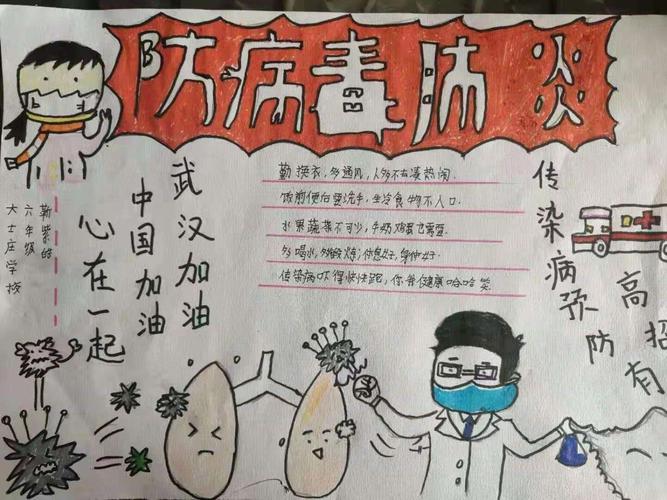 防病毒肺炎
勤换衣,多通风,人多不去凑热闹.
饭前便后要洗手,生冷食物不入口.
水果蔬菜不可少,牛奶鸡蛋也需要.
多喝水,多锻炼;休息好,身体好.
传染病吓得快快跑,你我健康哈哈笑.
传染病预防
有
高招
武汉加油
中国加油
心在一起
六年级
大士庄学校